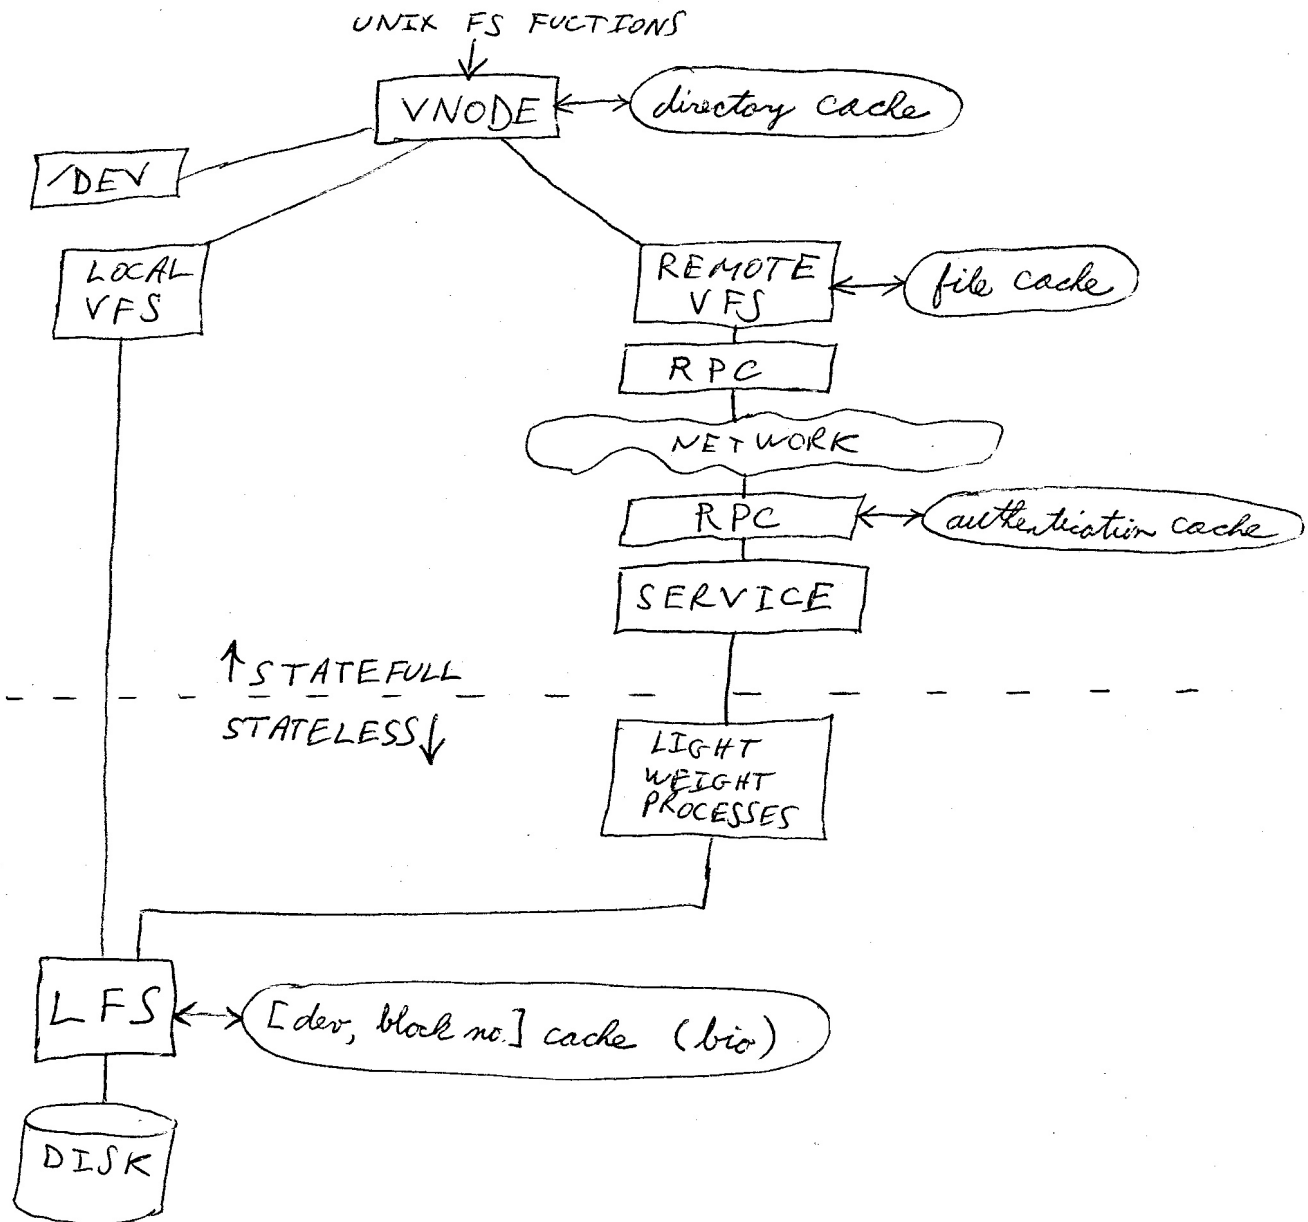 UNIX FS FUCTIONS
VNODE
directory cache
/DEV
LOCAL
VFS
REMOTE
VFS
file cache
RPC
NETWORK
RPC
authentication cache
SERVICE
↑STATEFULL
STATELESS↓
LIGHT
WEIGHT
PROCESSES
LFS
[dev, block no.] cache (bio)
DISK